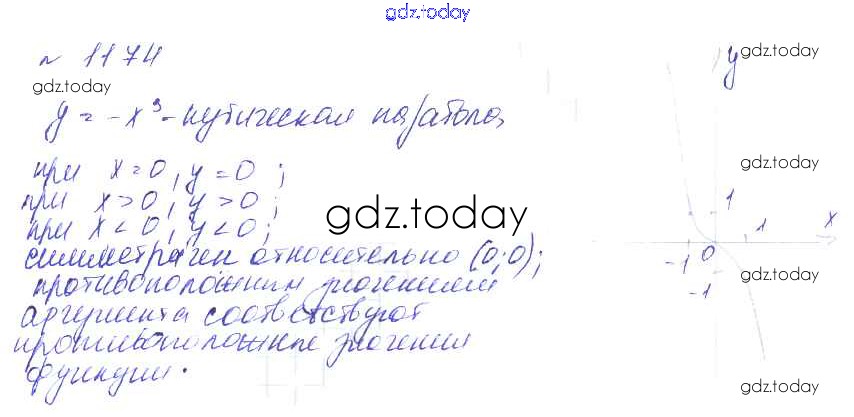 gdz.today
№ 1174
gdz.today
y = -x³ - кубическая парабола,
при x = 0, y = 0;
при x > 0, y > 0;
при x < 0, y < 0;
gdz.today
симметричен относительно (0;0);
противоположным значениям
аргумента соответствуют
противоположные значения
функции.
gdz.today
y
gdz.today
1
x
-1 0 1
gdz.today
-1
gdz.today